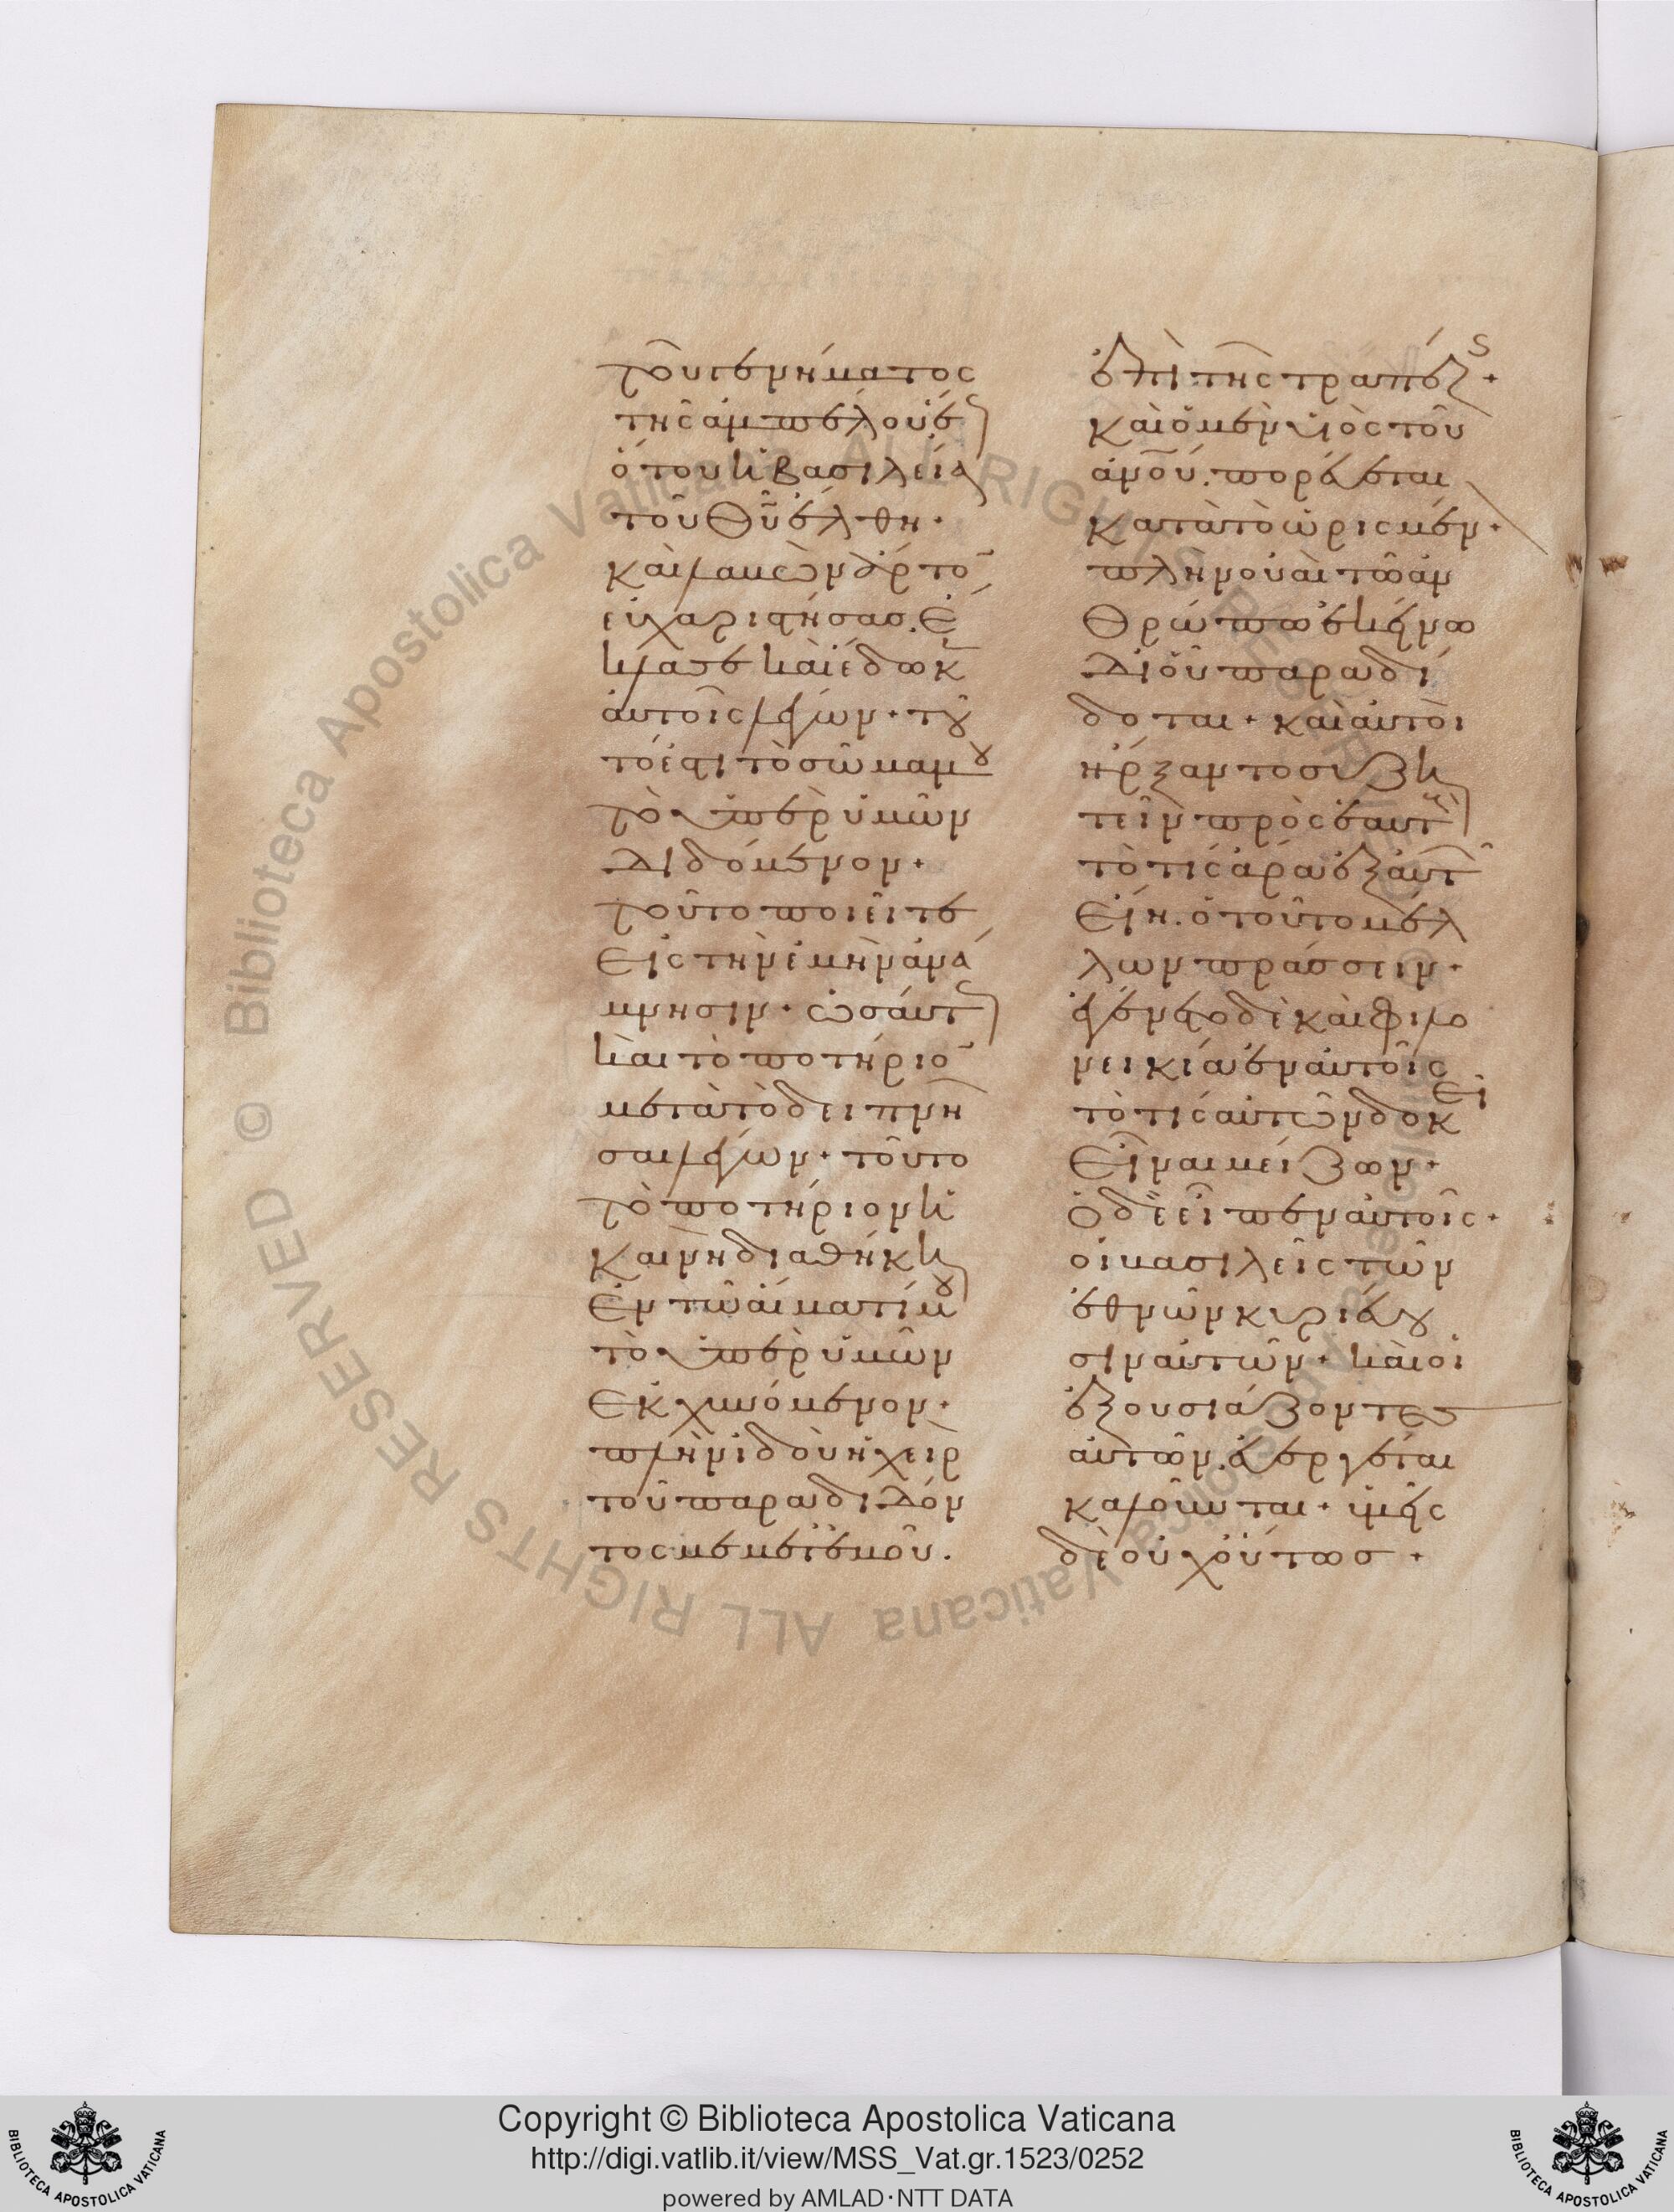 τοῦ γενήματος
τῆς ἀμπέλου ἕως
ὅτου ἡ βασιλεία
τοῦ Θῦ ἔλθη·
καὶ λαβὼν ἄρτο̅
εὐχαριστήσας. ἔ
κλασε καὶ ἔδωκ̅
αὐτοῖς λέγων· τοῦ
τό ἐστι τὸ σῶμα μου
τὸ ὑπὲρ ὑμῶν
διδόμενον·
τοῦτο ποιεῖτε
εἰς τὴν ἐμὴν ἀνά
μνησιν· ὡσαύτως
καὶ τὸ ποτήριο̅
μετὰ τὸ δειπνῆ
σαι λέγων· τοῦτο
τὸ ποτήριον ἡ
καινὴ διαθήκη
ἐν τῶ αἵματί μου
τὸ ὑπὲρ ὑμῶν
ἐκχυνόμενον·
πλὴν ἰδοὺ ἡ χεὶρ
τοῦ παραδιδόν
τος με μετ' ἐμοῦ.
ἐπὶ τῆς τραπέζης·
καὶ ὁ μὲν υἱὸς τοῦ
ἀνοῦ. πορεύεται
κατὰ τὸ ὡρισμέν·
πλὴν οὐαὶ τῶ ἀν
θρώπω ἐκείνω
δι' οὗ παραδί
δοται· καὶ αὐτοὶ
ἤρξαντο συζη
τεῖν πρὸς ἑαυτοὺς
τὸ τίς ἄρα ἐξ αὐτῶν
εἴη. ὁ τοῦτο μέλ
λων πράσσειν·
ἐγένετο δὲ καὶ φιλο
νεικία ἐν αὐτοῖς
τὸ τίς αὐτῶν δοκεῖ
εἶναι μείζων·
ὁ δὲ εἶπεν αὐτοῖς·
οἱ βασιλεῖς τῶν
ἐθνῶν κυριεύου
σιν αὐτῶν· καὶ οἱ
ἐξουσιάζοντες
αὐτῶν. εὐεργέται
καλοῦνται· ὑμεῖς
δὲ οὐχ οὕτως·
Copyright © Biblioteca Apostolica Vaticana
http://digi.vatlib.it/view/MSS_Vat.gr.1523/0252
powered by AMLAD·NTT DATA
BIBLIOTECA APOSTOLICA VATICANA
BIBLIOTECA APOSTOLICA VATICANA
© Biblioteca Apostolica Vaticana ALL RIGHTS RESERVED
© Biblioteca Apostolica Vaticana ALL RIGHTS RESERVED